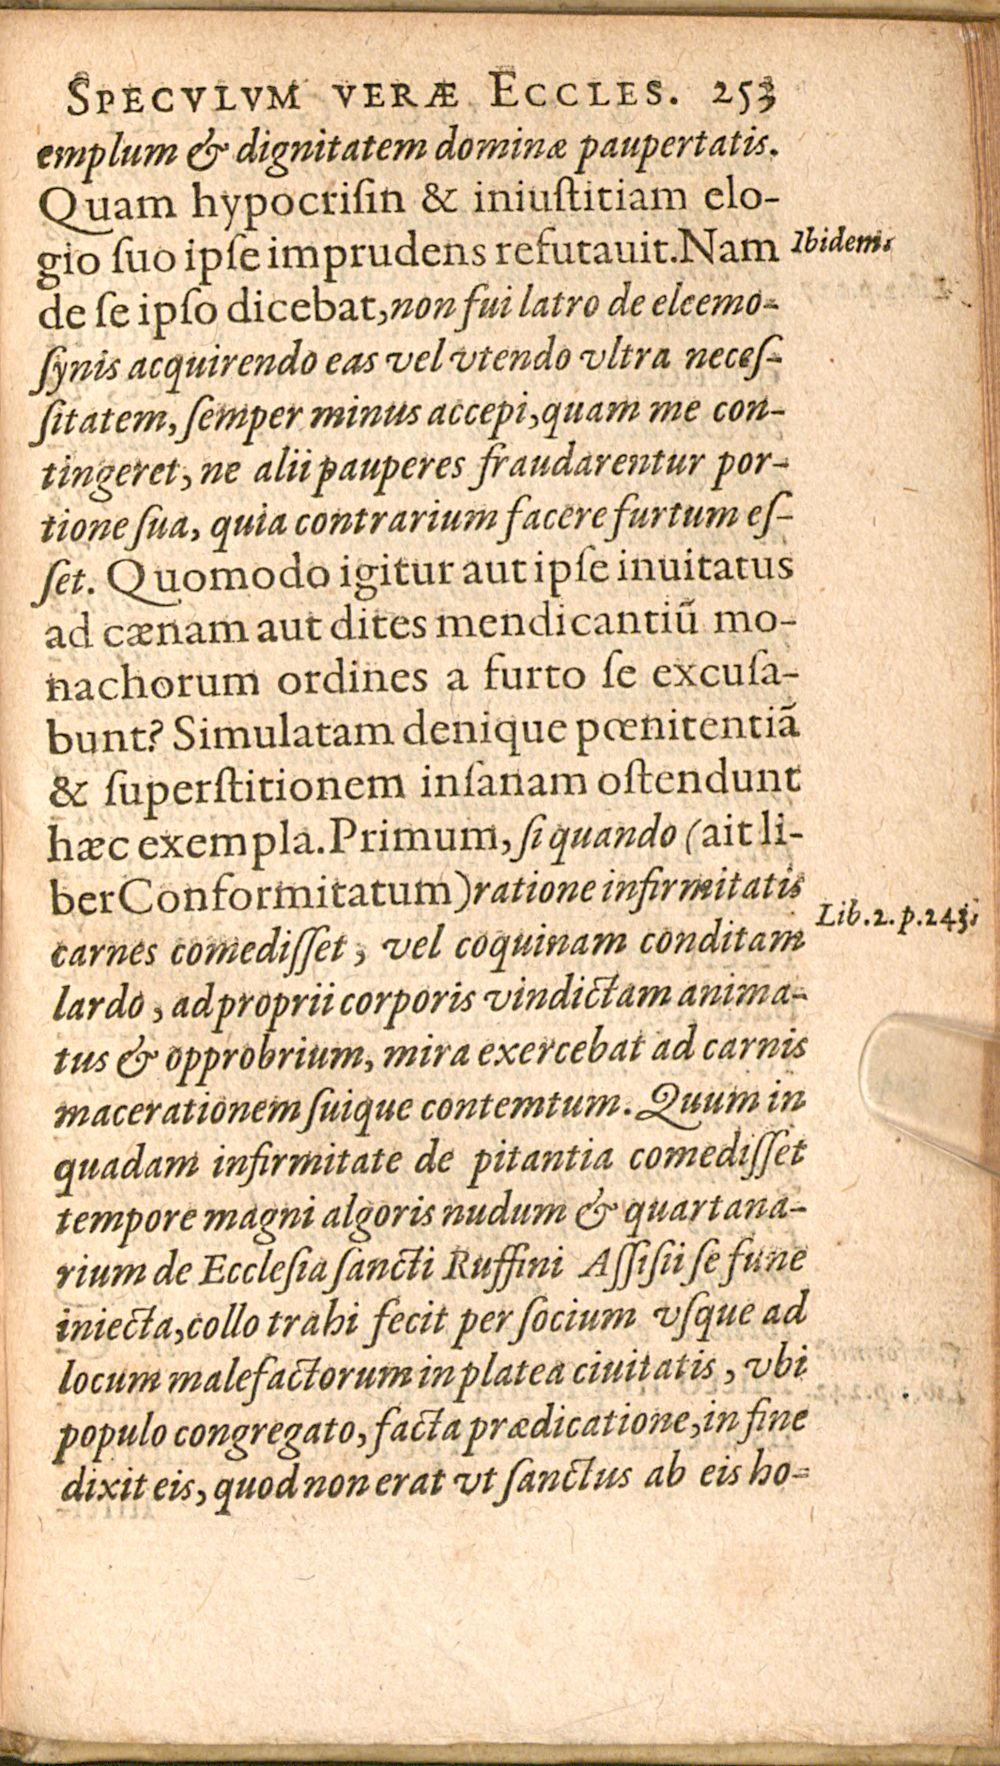 SPECVLVM VERÆ ECCLES. 253
emplum & dignitatem dominæ paupertatis.
Quam hypocriſin & iniuſtitiam elo-
gio ſuo ipſe imprudens refutauit. Nam
Ibidem.
de ſe ipſo dicebat, non fui latro de eleemo-
ſynis acquirendo eas vel vtendo vltra neceſ-
ſitatem, ſemper minus accepi, quam me con-
tingeret, ne alii pauperes fraudarentur por-
tione ſua, quia contrarium facere furtum eſ-
ſet. Quomodo igitur aut ipſe inuitatus
ad cænam aut dites mendicantiũ mo-
nachorum ordines a furto ſe excuſa-
bunt? Simulatam denique pœnitentiã
& ſuperſtitionem inſanam oſtendunt
hæc exempla. Primum, ſi quando (ait li-
ber Conformitatum) ratione infirmitatis
Lib. 2. p. 243.
carnes comediſſet, vel coquinam conditam
lardo, ad proprii corporis vindictam anima-
tus & opprobrium, mira exercebat ad carnis
macerationem ſuique contemtum. Quum in
quadam infirmitate de pitantia comediſſet
tempore magni algoris nudum & quartana-
rium de Eccleſia ſancti Ruffini Aſſiſii ſe fune
iniecta, collo trahi fecit per ſocium vſque ad
locum malefactorum in platea ciuitatis, vbi
populo congregato, facta prædicatione, in fine
dixit eis, quod non erat vt ſanctus ab eis ho-